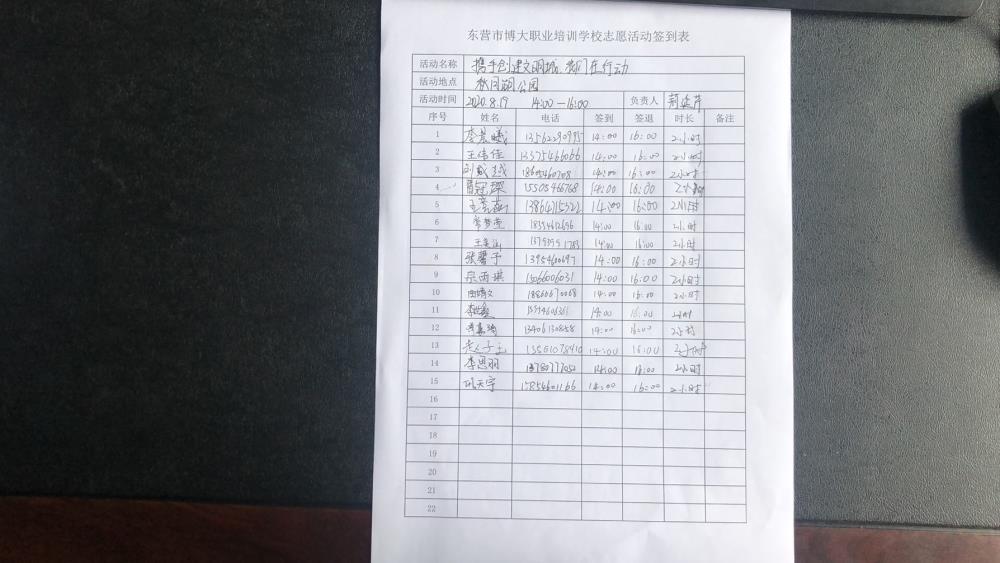 东营市博大职业培训学校志愿活动签到表
活动名称 携手创建文明城，我们在行动
活动地点 秋月湖公园
活动时间 2020.8.19 14:00—16:00 负责人
序号 姓名 电话 签到 签退 时长 备注
1 李景曦 13562290995 14:00 16:00 2小时
2 王伟佳 13375466066 14:00 16:00 2小时
3 刘成越 18605460708 14:00 16:00 2小时
4 冠琛 15505466768 14:00 16:00 2小时
5 王 13864715322 14:00 16:00 2小时
6 常梦莹 18354612696 14:00 16:00 2小时
7 王 1783 14:00 16:00 2小时
8 张馨予 13954600697 14:00 16:00 2小时
9 宗雨琪 15066006031 14:00 16:00 2小时
10 田晴文 18860670068 14:00 16:00 2小时
11 李 14:00 16:00 2小时
12 13406130858 14:00 16:00 2小时
13 子 13561078410 14:00 16:00 2小时
14 李思羽 14:00 16:00 2小时
15 巩天宇 15854601166 14:00 16:00 2小时
16
17
18
19
20
21
22